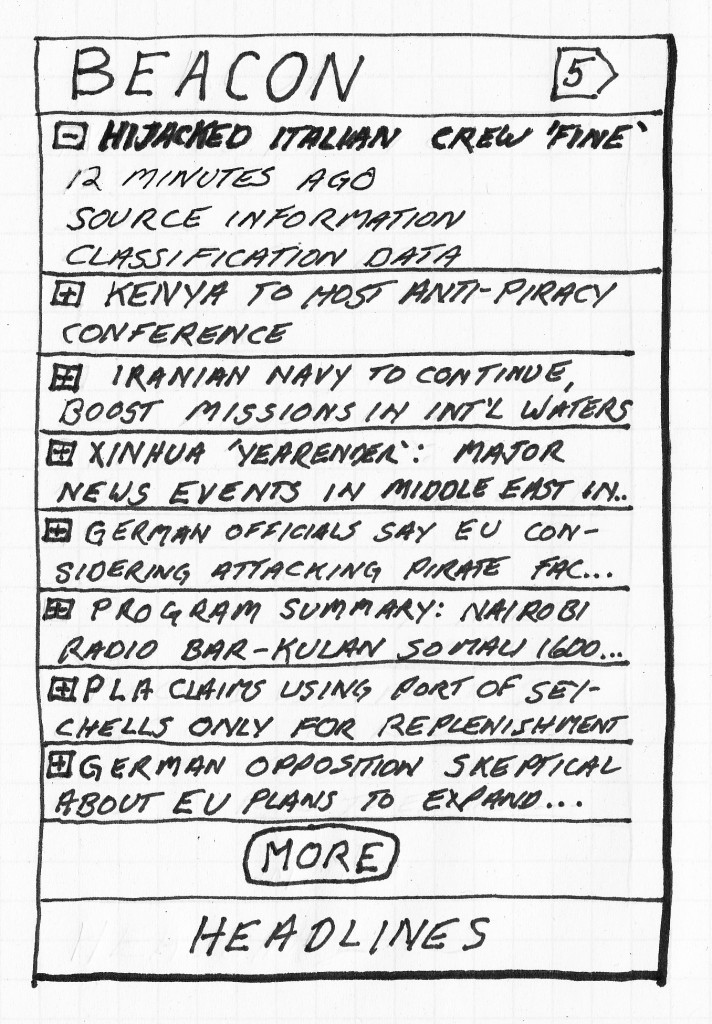 BEACON
5
HIJACKED ITALIAN CREW 'FINE'
12 MINUTES AGO
SOURCE INFORMATION
CLASSIFICATION DATA
KENYA TO HOST ANTI-PIRACY
CONFERENCE
IRANIAN NAVY TO CONTINUE,
BOOST MISSIONS IN INT'L WATERS
XINHUA 'YEARENDER': MAJOR
NEWS EVENTS IN MIDDLE EAST IN..
GERMAN OFFICIALS SAY EU CON-
SIDERING ATTACKING PIRATE FAC...
PROGRAM SUMMARY: NAIROBI
RADIO BAR-KULAN SOMALI 1600...
PLA CLAIMS USING PORT OF SEY-
CHELLS ONLY FOR REPLENISHMENT
GERMAN OPPOSITION SKEPTICAL
ABOUT EU PLANS TO EXPAND...
MORE
HEADLINES